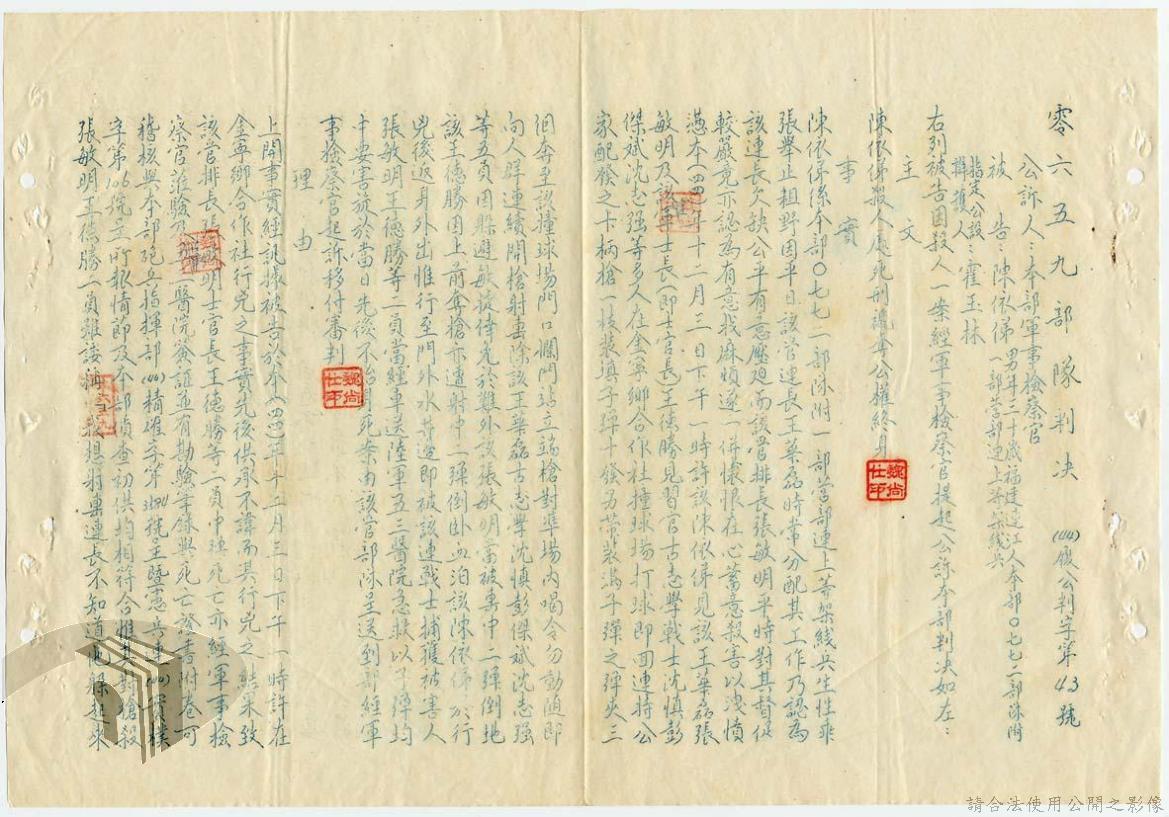 零六五九部隊判決 (44)厦公判字第43號
公訴人：本部軍事檢察官
被告：陳依俤 男年二十歲福建連江人本部〇七七二部隊附
一部營部連上等架綫兵
指定公設辯護人：霍玉林
右列被告因殺人一案經軍事檢察官提起公訴本部判决如左：
主文
陳依俤殺人處死刑褫奪公權終身
事實
陳依俤係本部〇七七一部隊附一部營部連上等架綫兵生性乖
張舉止粗野因平日該營連長王華磊時常分配其工作乃認為
該連長欠缺公平有意壓廹而該營排長張敏明平時對其督促
較嚴竟亦認為有意找麻煩遂一併懷恨在心蓄意殺害以洩憤
憑本(四四)年十二月三日下午一時許該陳依俤見該王華磊張
敏明及該營士長(即士官長)王德勝見習官古志學戰士沈慎彭
傑斌沈志强等多人在金寧鄉合作社撞球場打球即回連持公
家配發之卡柄槍一枝裝填子彈十發另帶裝滿子彈之彈夾三
個奔至該撞球場門口攔門站立端槍對準場內喝令勿動随即
向人群連續開槍射擊除該王華磊古志學沈慎彭傑斌沈志强
等五員因躲避敏捷倖免於難外該張敏明當被擊中二彈倒地
該王德勝因上前奪槍亦遭射中一彈倒卧血泊該陳依俤於行
兇後返身外出惟行至門外水井邊即被該連戰士捕獲被害人
張敏明王德勝等二員當經車送陸軍五三醫院急救以子彈均
中要害該於當日先後不治身死案由該管部隊呈送到部經軍
事檢察官起訴移付審判
理由
上開事實經訊據被告於本(四四)年十二月三日下午一時許在
金寧鄉合作社行兇之事實先後供承不諱而其行兇之結果致
該營排長張敏明士官長王德勝等二員中彈死亡亦經軍事檢
察官蒞驗分醫院簽證並有勘驗筆錄與死亡證書附卷可
稽核與本部砲兵指揮部(44)精確字第號呈暨憲兵連(44)實樸
字第106號呈所報情節及本部偵查初供均相符合惟其對槍殺
張敏明王德勝二員雖諉稱我想射擊連長不知道他躲起來
魏尚仕平
魏尚仕平
請合法使用公開之影像